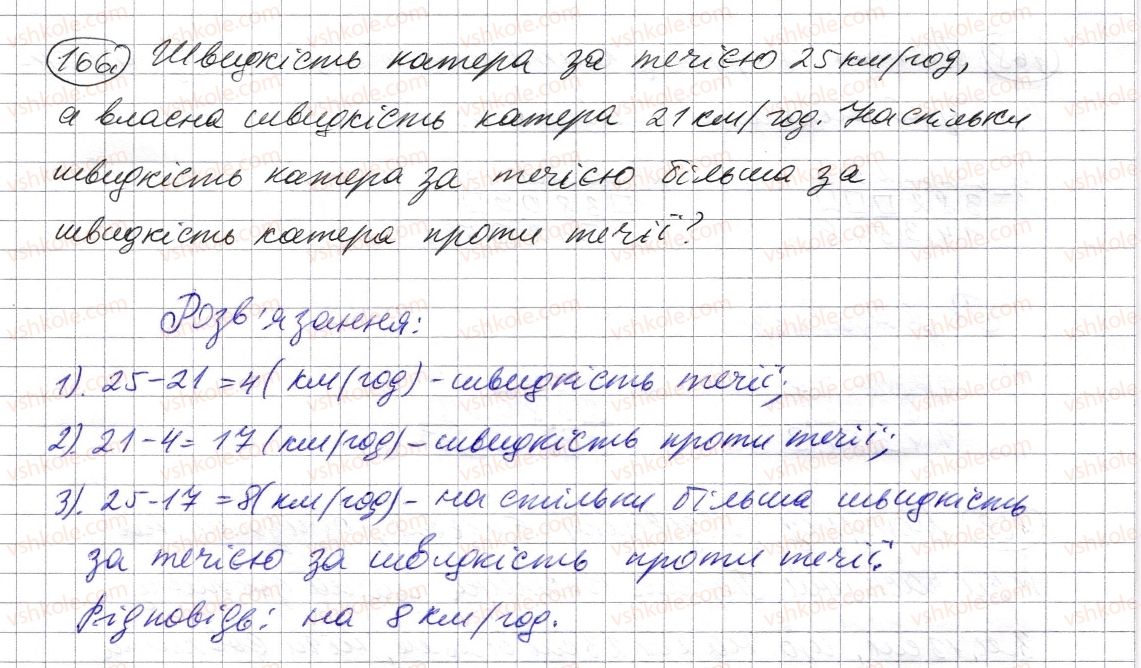 166. Швидкість катера за течією 25 км/год,
а власна швидкість катера 21 км/год. Наскільки
швидкість катера за течією більша за
швидкість катера проти течії?
Розв'язання:
1). 25-21=4 (км/год) - швидкість течії;
2). 21-4= 17 (км/год) - швидкість проти течії;
3). 25-17=8 (км/год) - на стільки більша швидкість
за течією за швидкість проти течії.
Відповідь: на 8 км/год.